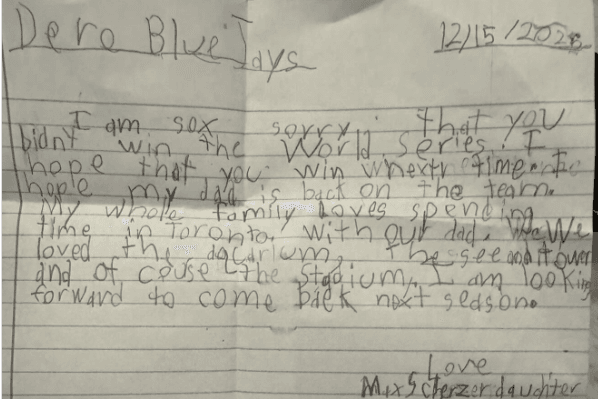 Dero Blue Jays
12/15/2025
I am sox sorry that you
didnt win the World series. I
hope that you win wnextr time. I
hople my dad is back on the team.
My whole family loves spending
time in Toronto, with our dad. We
loved the aqcarium, the see andt ower
and of couse the stadium. I am looking
forward to come back next season.
Love
Max Scherzer daughter